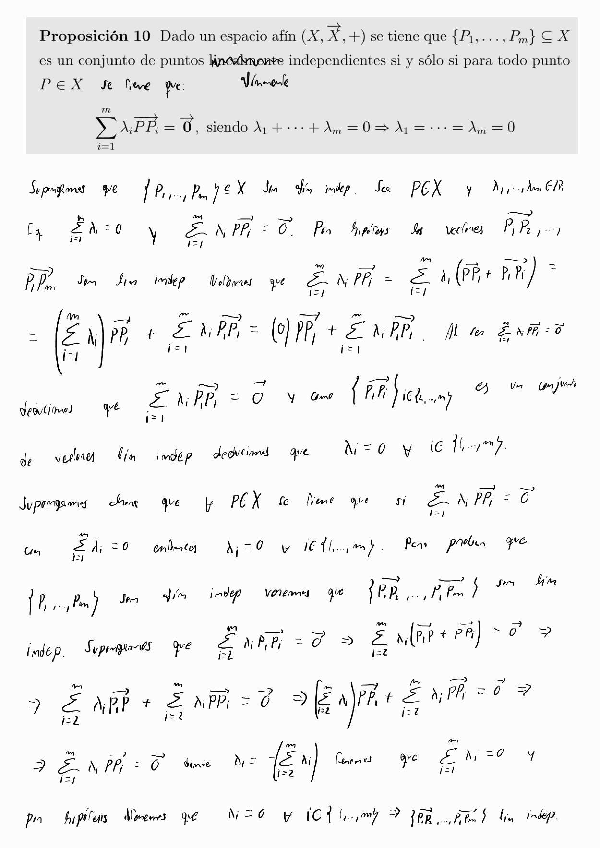 Proposición 10 Dado un espacio afín (X, X⃗, +) se tiene que {P₁, . . . , Pₘ} ⊆ X
es un conjunto de puntos linealmente independientes si y sólo si para todo punto
P ∈ X se tiene que: afínmente
∑ᵢ₌₁ᵐ λᵢPPᵢ⃗ = 0⃗, siendo λ₁ + · · · + λₘ = 0 ⇒ λ₁ = · · · = λₘ = 0
Supongamos que {P₁,...,Pₘ} ⊆ X son afín indep. Sea P∈X y λ₁,...,λₘ∈ℝ
tq ∑ᵢ₌₁ᵐ λᵢ = 0 y ∑ᵢ₌₁ᵐ λᵢ PPᵢ⃗ = 0⃗. Por hipótesis los vectores P₁P₂⃗,...,
P₁Pₘ⃗ son lin indep que ∑ᵢ₌₁ᵐ λᵢ PPᵢ⃗ = ∑ᵢ₌₁ᵐ λᵢ (PP₁⃗ + P₁Pᵢ⃗) =
= (∑ᵢ₌₁ᵐ λᵢ) PP₁⃗ + ∑ᵢ₌₁ᵐ λᵢ P₁Pᵢ⃗ = (0) PP₁⃗ + ∑ᵢ₌₁ᵐ λᵢ P₁Pᵢ⃗. Al ser ∑ᵢ₌₁ᵐ λᵢ PPᵢ⃗ = 0⃗
deducimos que ∑ᵢ₌₁ᵐ λᵢ P₁Pᵢ⃗ = 0⃗ y como {P₁Pᵢ⃗}ᵢ∈{2,...,m} es un conjunto
de vectores lin indep deducimos que λᵢ = 0 ∀ i∈{1,...,m}.
Supongamos ahora que ∀ P∈X se tiene que si ∑ᵢ₌₁ᵐ λᵢ PPᵢ⃗ = 0⃗
con ∑ᵢ₌₁ᵐ λᵢ = 0 entonces λᵢ = 0 ∀ i∈{1,...,m}. Para probar que
{P₁,...,Pₘ} son afín indep veremos que {P₁P₂⃗,...,P₁Pₘ⃗} son lin
indep. Supongamos que ∑ᵢ₌₂ᵐ λᵢ P₁Pᵢ⃗ = 0⃗ ⇒ ∑ᵢ₌₂ᵐ λᵢ(P₁P⃗ + PPᵢ⃗) = 0⃗ ⇒
⇒ ∑ᵢ₌₂ᵐ λᵢ P₁P⃗ + ∑ᵢ₌₂ᵐ λᵢ PPᵢ⃗ = 0⃗ ⇒ -(∑ᵢ₌₂ᵐ λᵢ) PP₁⃗ + ∑ᵢ₌₂ᵐ λᵢ PPᵢ⃗ = 0⃗ ⇒
⇒ ∑ᵢ₌₁ᵐ λᵢ PPᵢ⃗ = 0⃗ donde λ₁ = -(∑ᵢ₌₂ᵐ λᵢ) tenemos que ∑ᵢ₌₁ᵐ λᵢ = 0 y
por hipótesis que λᵢ = 0 ∀ i∈{1,...,m} ⇒ {P₁P₂⃗,...,P₁Pₘ⃗} lin indep.